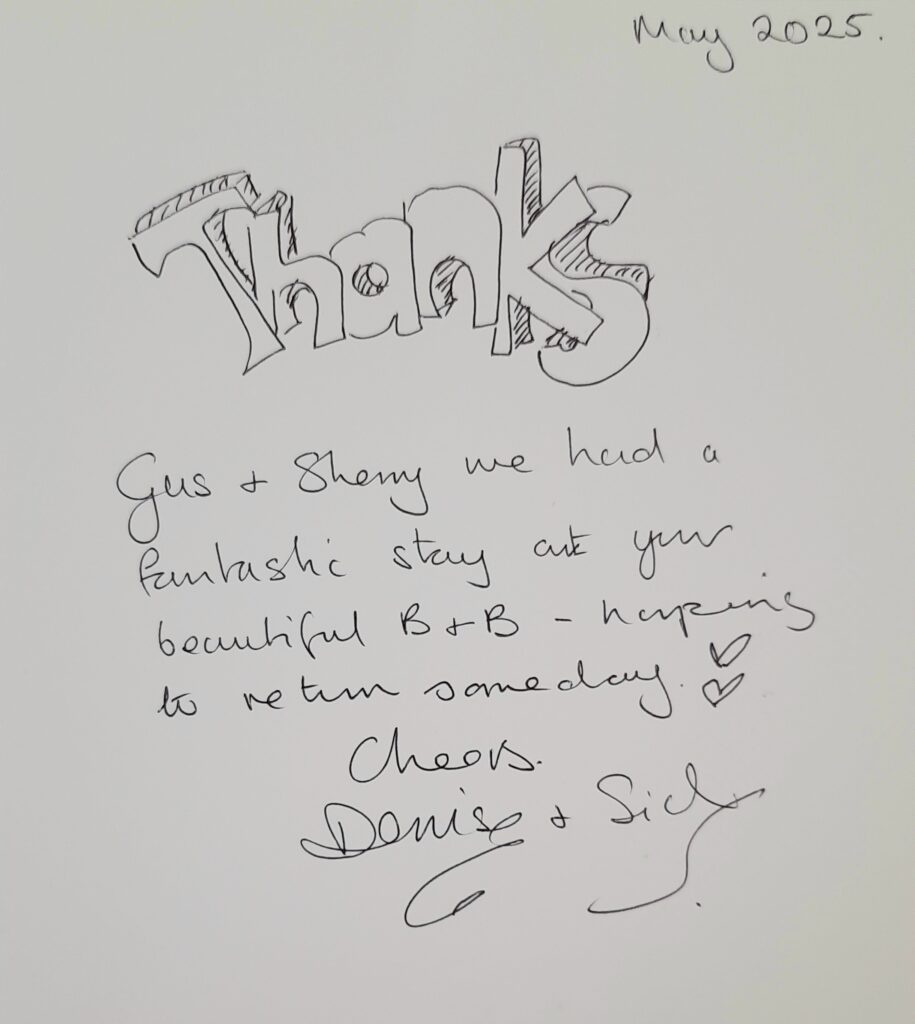 May 2025.
Thanks
Gus + Sherry we had a
fantastic stay at your
beautiful B+B - hoping
to return someday.
Cheers.
Denise +